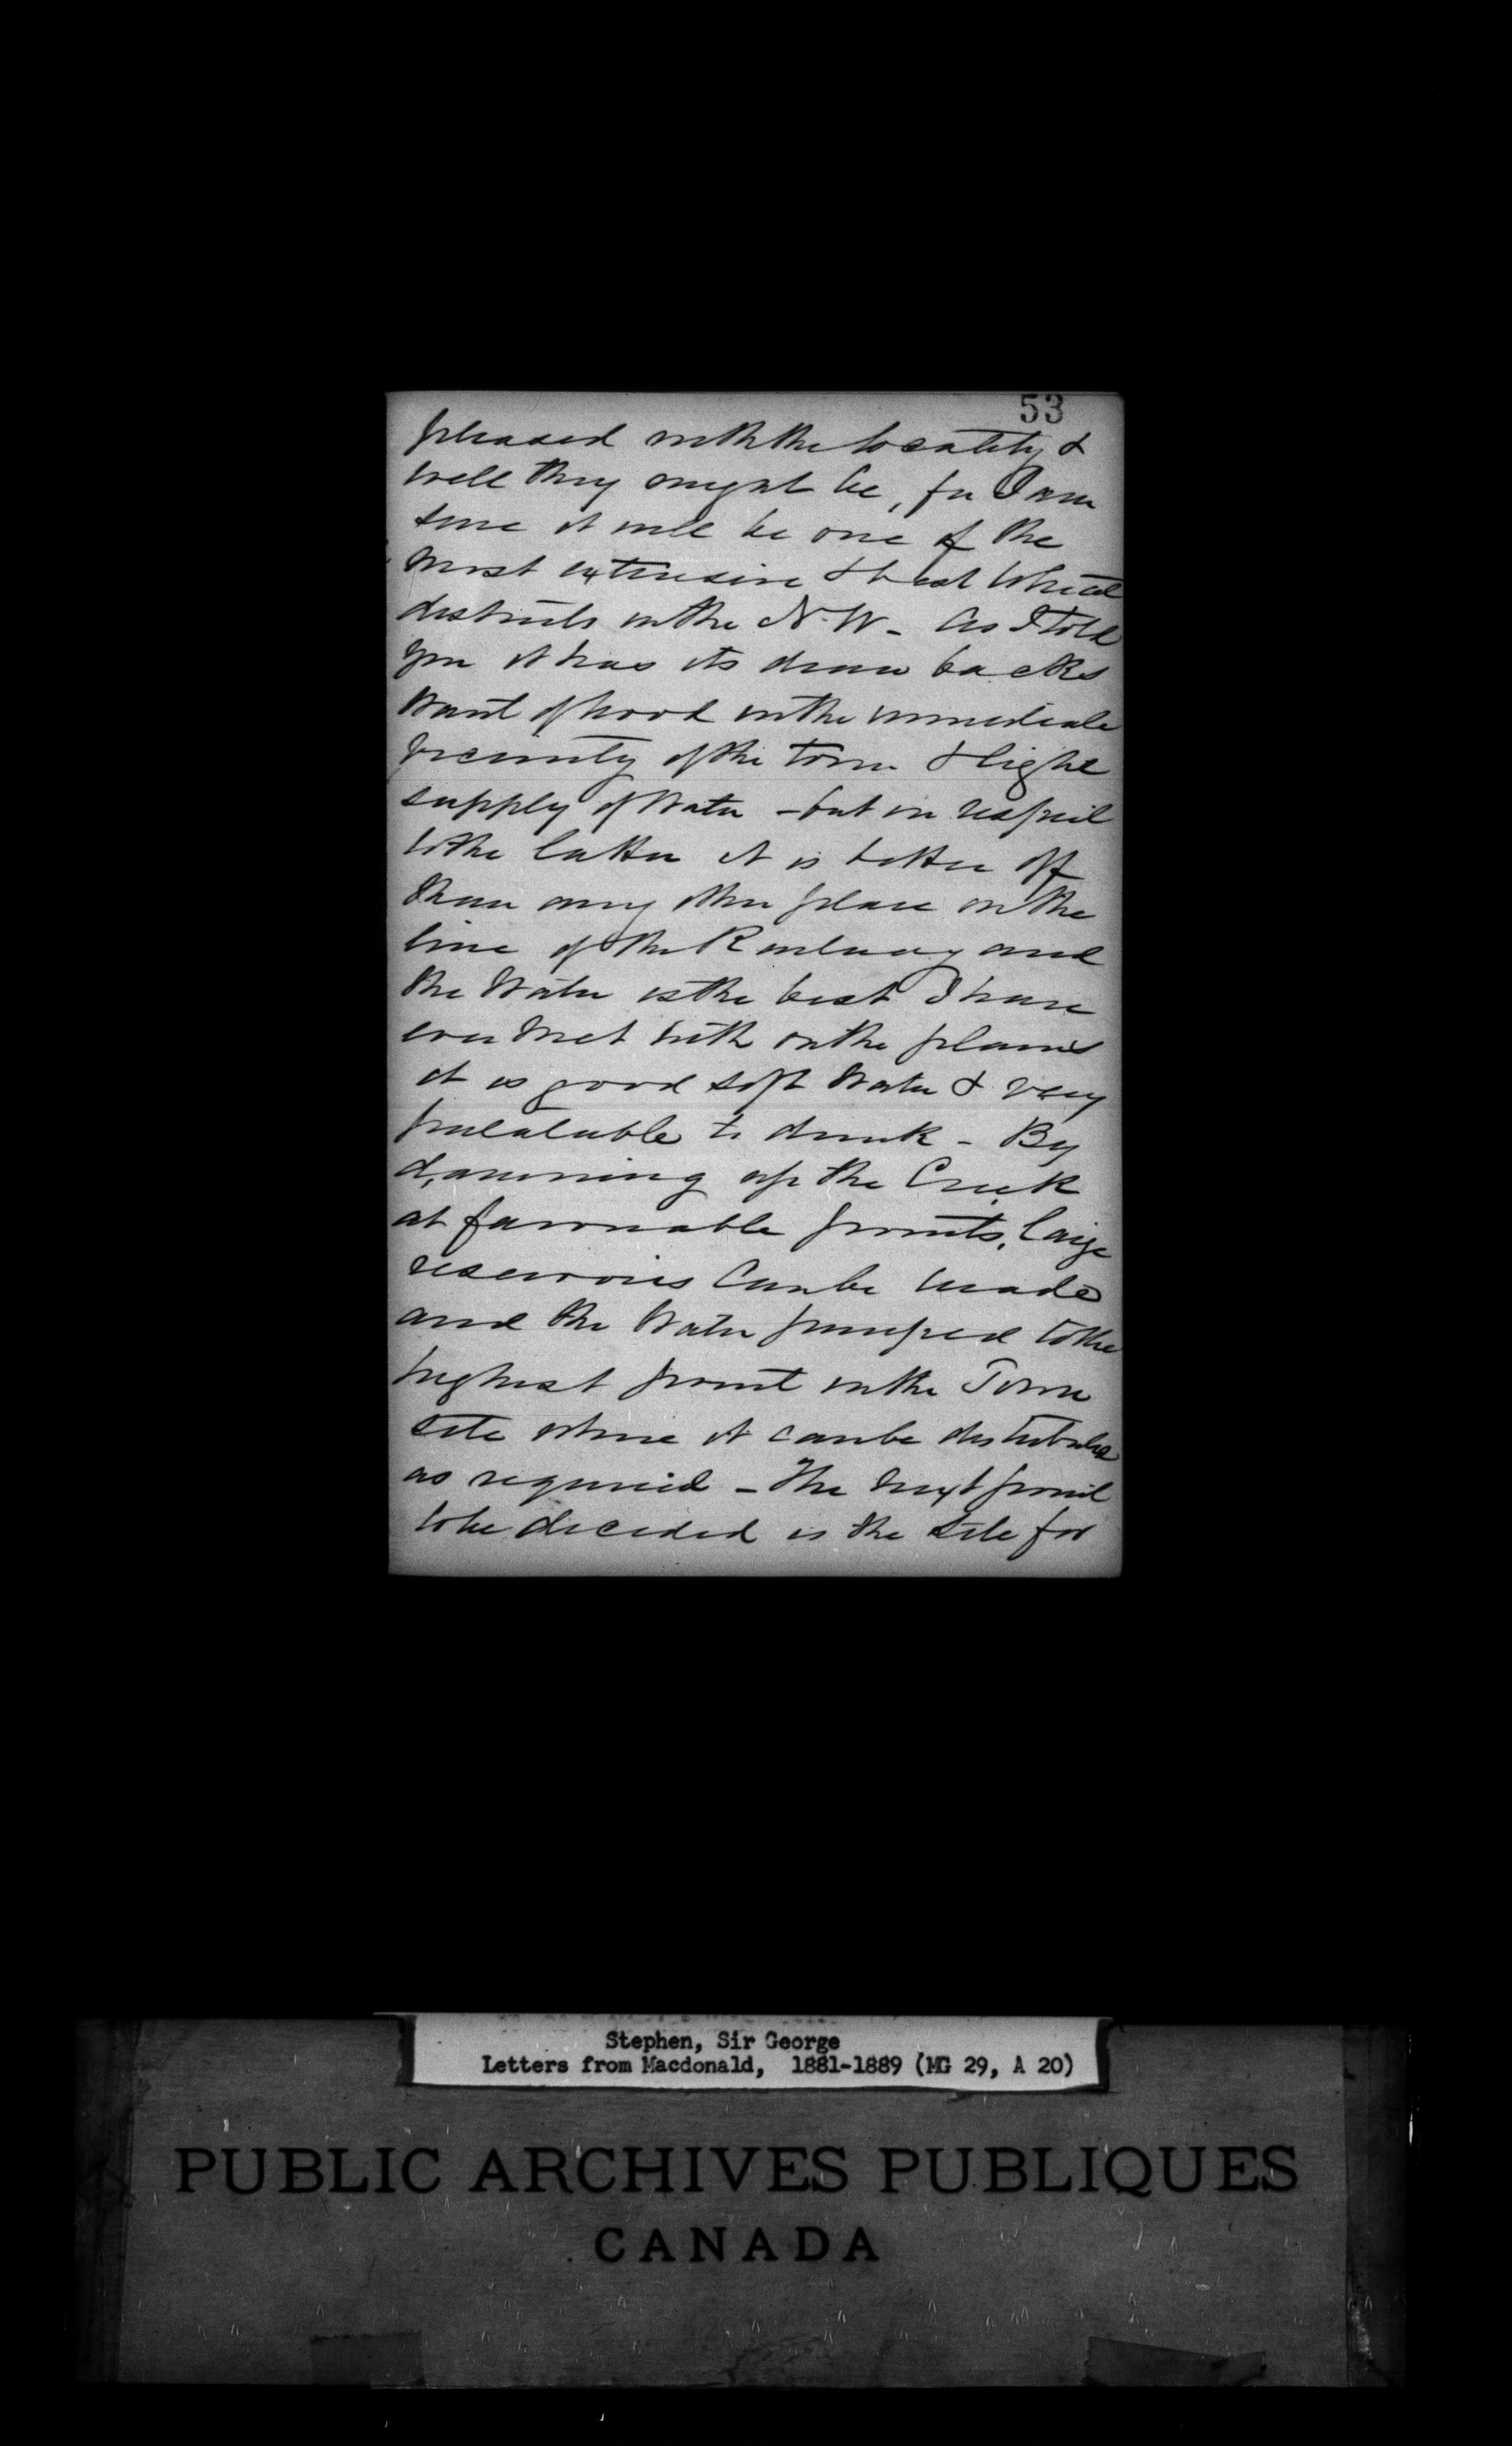 53
pleased with the locality &
well they might be, for I am
sure it will be one of the
most extensive & best Wheat
districts in the N.W. - As I told
you it has its draw backs
want of wood in the immediate
vicinity of the town & light
supply of Water - but in respect
to the latter it is better off
than any other place on the
line of the Railway and
the Water is the best I have
ever met with on the plains
it is good soft Water & very
palatable to drink - By
damming up the Creek
at favourable points, large
reservoirs can be made
and the Water pumped to the
highest point in the Town
site where it can be distributed
as required - The next point
to be decided is the site for
Stephen, Sir George
Letters from Macdonald, 1881-1889 (MG 29, A 20)
PUBLIC ARCHIVES PUBLIQUES
CANADA